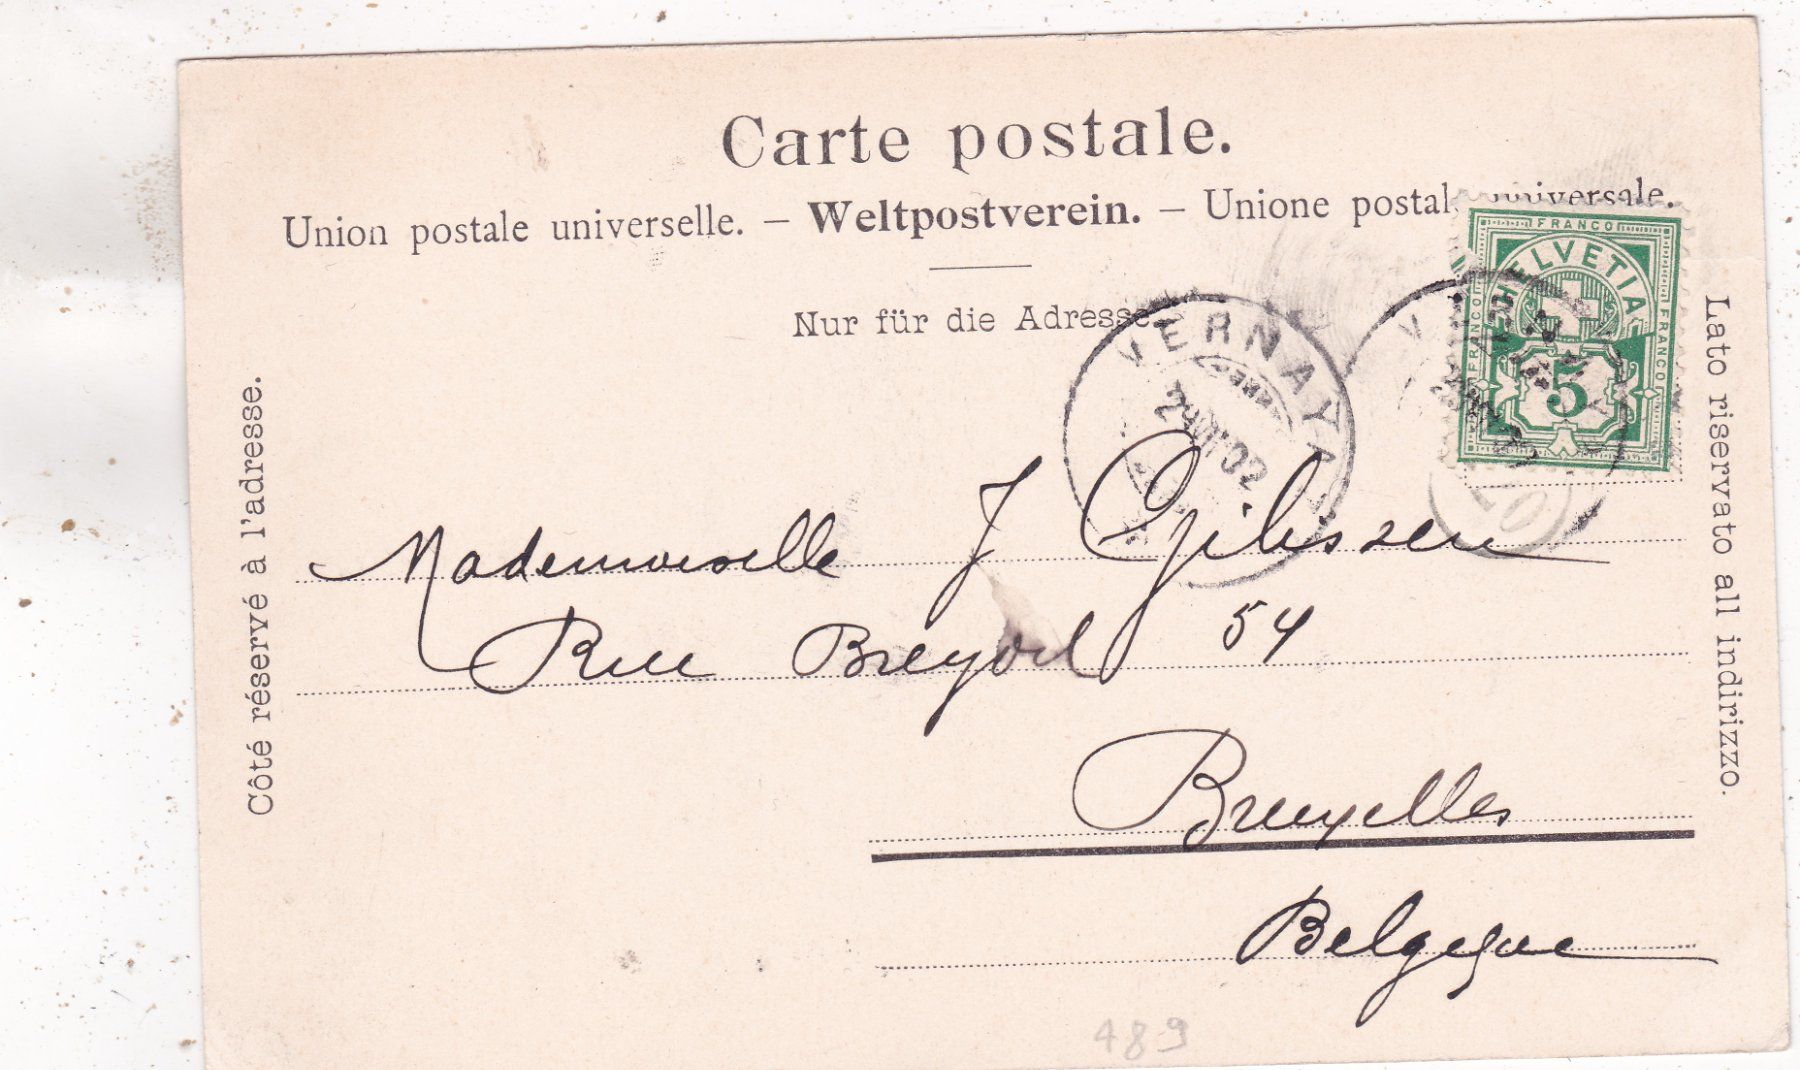 Carte postale.
Union postale universelle. – Weltpostverein. – Unione postal universale.
Nur für die Adresse
Côté réservé à l'adresse.
Lato riservato all indirizzo.
FRANCO
HELVETIA
FRANCO
FRANCO
5
VERNAYA
02
Mademoiselle J Gilissen
Rue Breydel 54
Bruxelles
Belgique
489